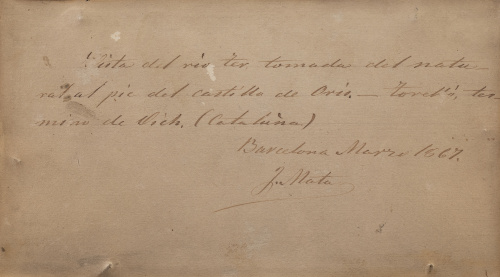 Vista del rio ter, tomada del natu-
ral al pie del castillo de Oris. — Torelló, ter-
mino de Vich. (Cataluña)
Barcelona Marzo 1867.
Mata